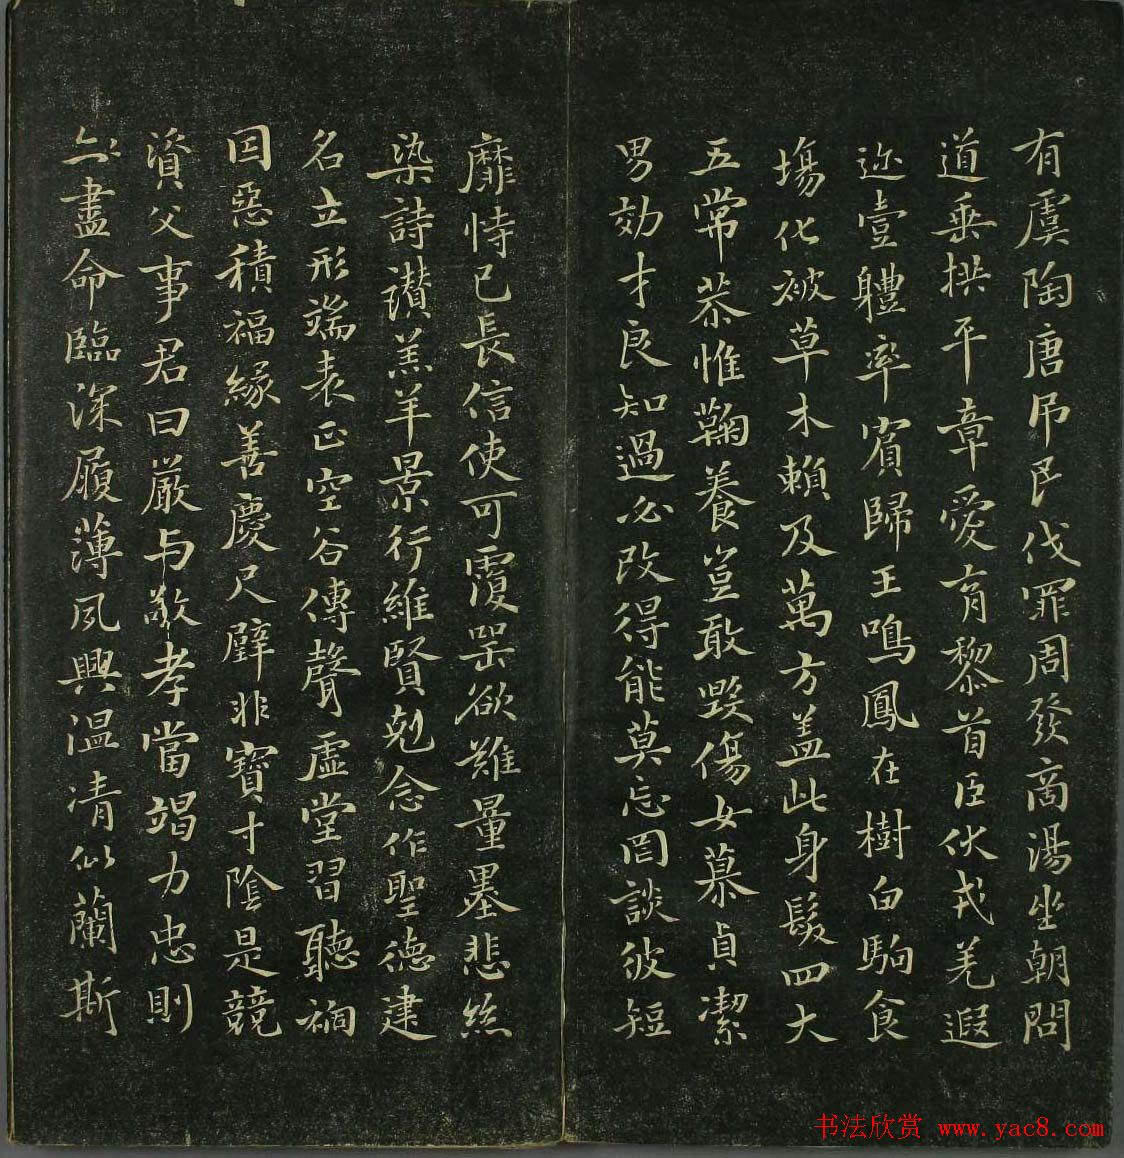 有虞陶唐吊民伐罪周發商湯坐朝問
道垂拱平章愛育黎首臣伏戎羌遐
迩壹軆率賓歸王鳴鳳在樹白駒食
塲化被草木賴及萬方盖此身髮四大
五常恭惟鞠養豈敢毀傷女慕貞潔
男効才良知過必改得能莫忘罔談彼短
靡恃己長信使可覆器欲難量墨悲絲
染詩讃羔羊景行維賢剋念作聖德建
名立形端表正空谷傳聲虛堂習聽禍
因惡積福緣善慶尺璧非寶寸陰是競
資父事君曰嚴与敬孝當竭力忠則
盡命臨深履薄夙興溫凊似蘭斯
书法欣赏 www.yac8.com